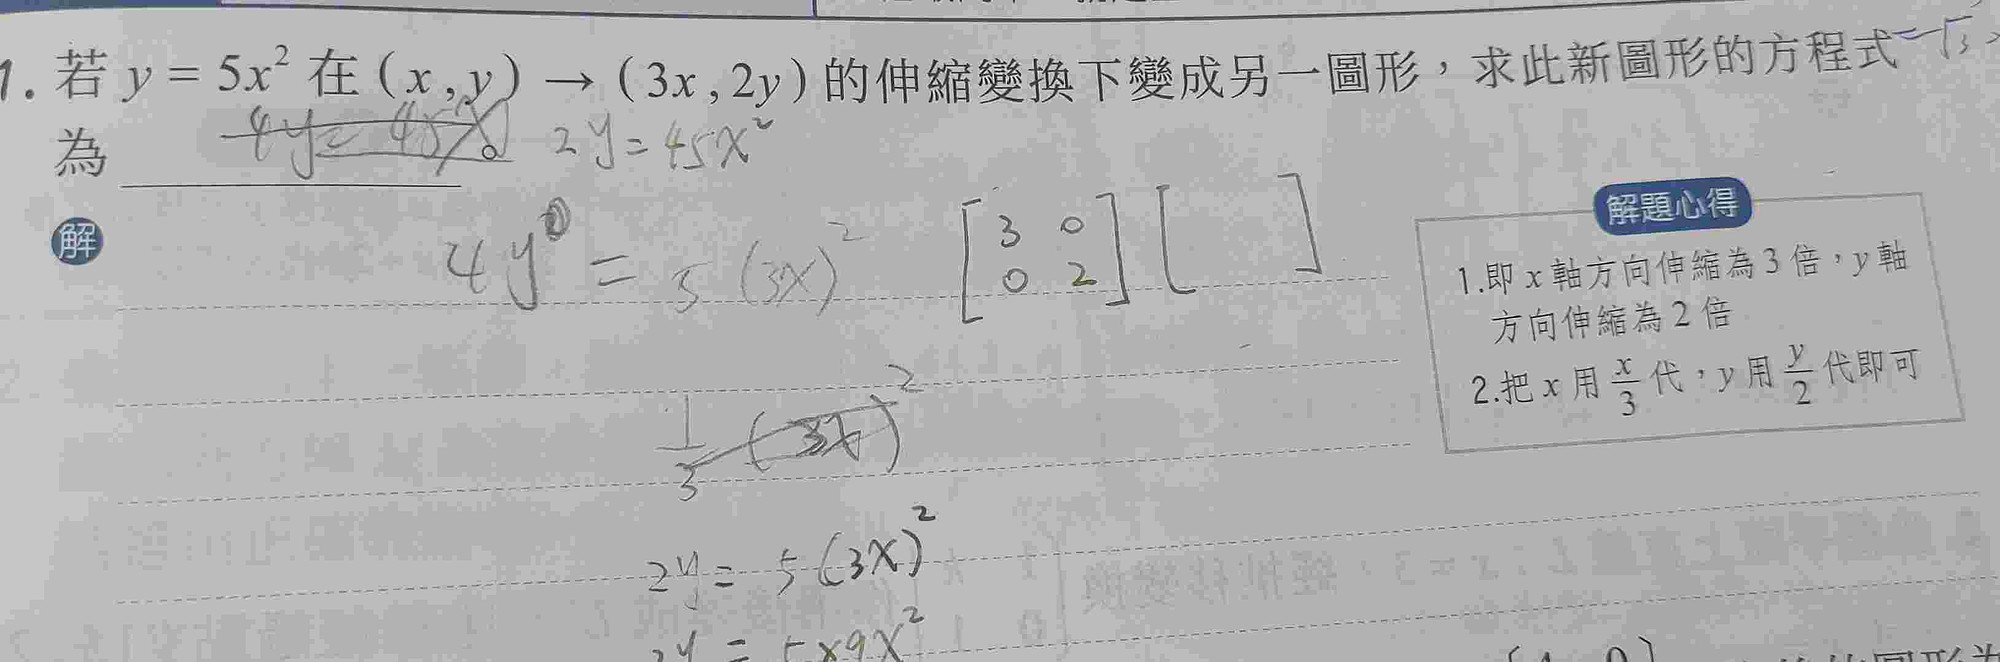 1. 若 y = 5x² 在 (x, y) → (3x, 2y) 的伸縮變換下變成另一圖形，求此新圖形的方程式
為 4y = 45x 。 2y = 45x²
解
4y = 5 (3x)² [3 0
0 2] [ ]
1/3 (3x)²
2y = 5 (3x)²
2y = 5×9x²
解題心得
1.即 x 軸方向伸縮為 3 倍，y 軸
方向伸縮為 2 倍
2.把 x 用 x/3 代，y 用 y/2 代即可